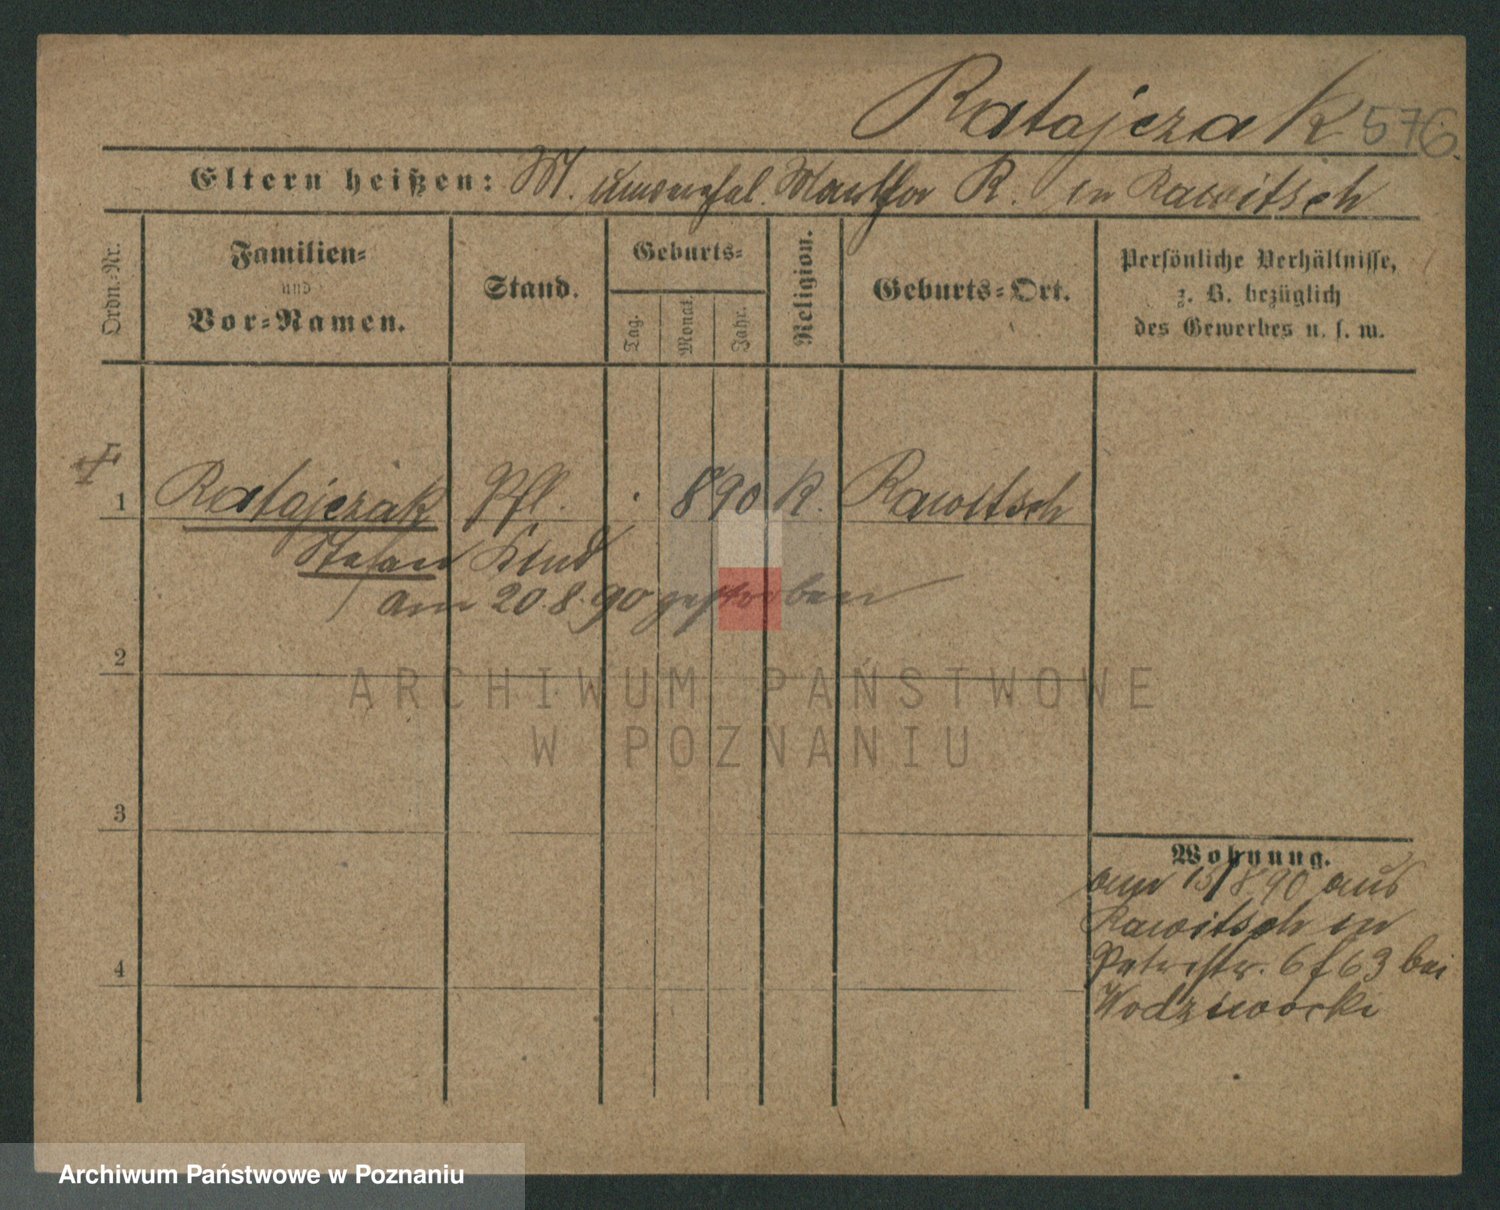 Ratajczak 576.
Eltern heißen: M. unverehel. Martha R. in Rawitsch
Ordn.-Nr.
Familien-
und
Vor-Namen.
Stand.
Geburts-
Tag.
Monat.
Jahr.
Religion.
Geburts-Ort.
Persönliche Verhältnisse,
z. B. bezüglich
des Gewerbes u. s. w.
1 Ratajczak Pfl. . 8 90 K. Rawitsch
Stefan Kind
am 20.8.90 gestorben
2
ARCHIWUM PAŃSTWOWE
W POZNANIU
3
4
Wohnung.
15/8 90 aus
Rawitsch in
Petristr. 6 f 63 bei
Archiwum Państwowe w Poznaniu